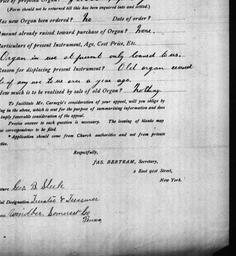 (Form should not be returned till this has been inquired into and settled).
Has new Organ been ordered? No Date of order?
Amount already raised toward purchase of Organ? None.
Particulars of present Instrument, Age, Cost Price, Etc.
Organ in use at present only loaned to us.
Reason for displacing present Instrument? Old organ ceased
to be of any use to us over a year ago.
How much is to be realized by sale of old Organ? Nothing
To facilitate Mr. Carnegie's consideration of your appeal, will you oblige by
filling in the above, which is sent for the purpose of summarizing information and
favorable consideration of the appeal.
Precise answer to each question is necessary. The leaving of blanks may
correspondence to be filed.
* Application should come from Church authorities and not from private
Respectfully,
JAS. BERTRAM, Secretary,
2 East 91st Street,
New York.
Geo. B.
Trustee & Treasurer
Windber Somerset Co
Penna